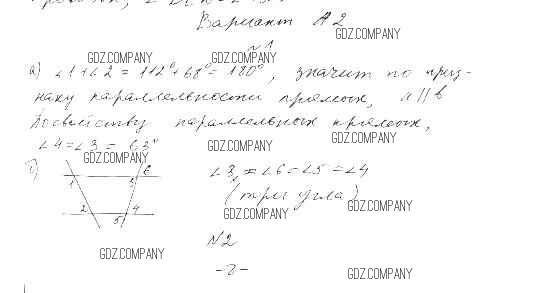 Вариант А2
GDZ.COMPANY
№1
GDZ.COMPANY GDZ.COMPANY
а) ∠1+∠2 = 112°+68° = 180°, значит по приз-
наку параллельности прямых, a || b
По свойству параллельных прямых,
GDZ.COMPANY
∠4=∠3 = 63°
GDZ.COMPANY
GDZ.COMPANY
б) 1 2 3 4 5 6
∠3 = ∠6 = ∠5 = ∠4
(три угла)
GDZ.COMPANY
GDZ.COMPANY
№2
GDZ.COMPANY
-2-
GDZ.COMPANY